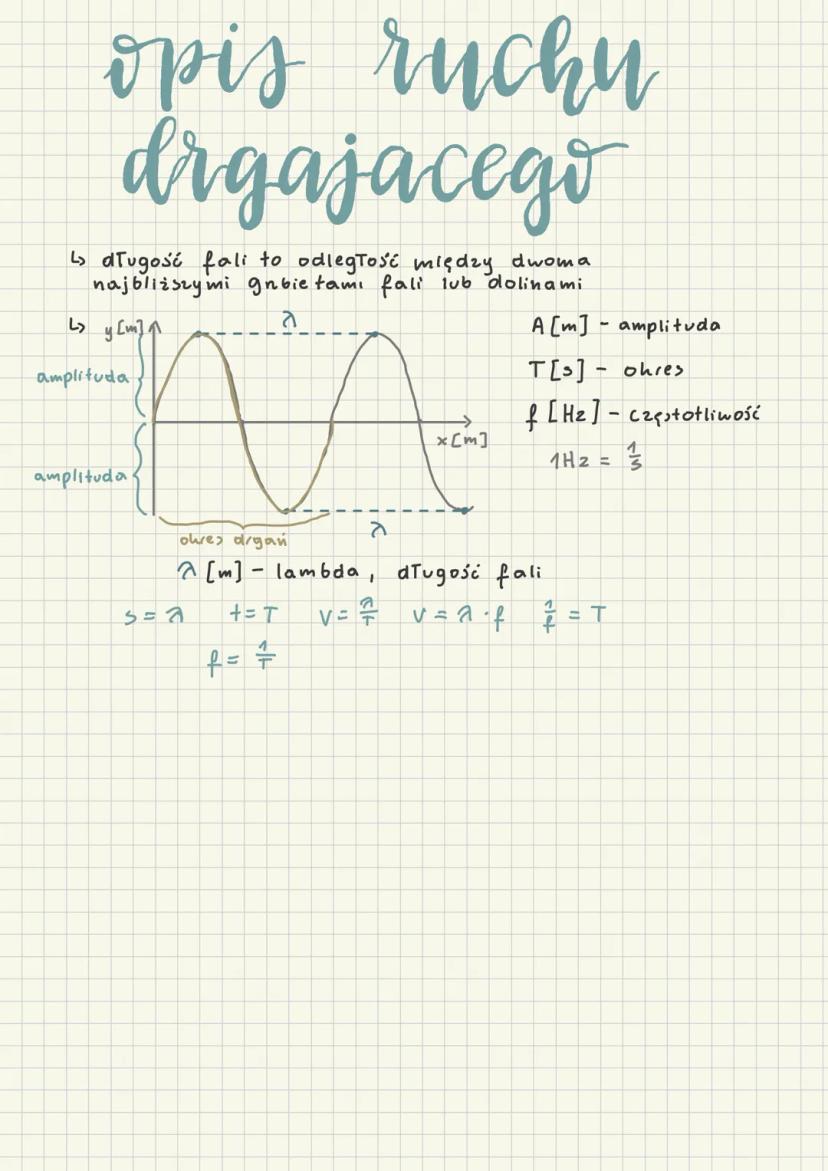 opis ruchu
drgajacego
↳ długość fali to odległość między dwoma
najbliższymi grzbietami fali lub dolinami
↳ y[m]
λ
amplituda
amplituda
x[m]
λ
okres drgań
A[m] - amplituda
T[s] - okres
f [Hz] - częstotliwość
1Hz = 1/s
λ [m] - lambda, długość fali
s = λ t = T v = λ/T v = λ · f 1/f = T
f = 1/T